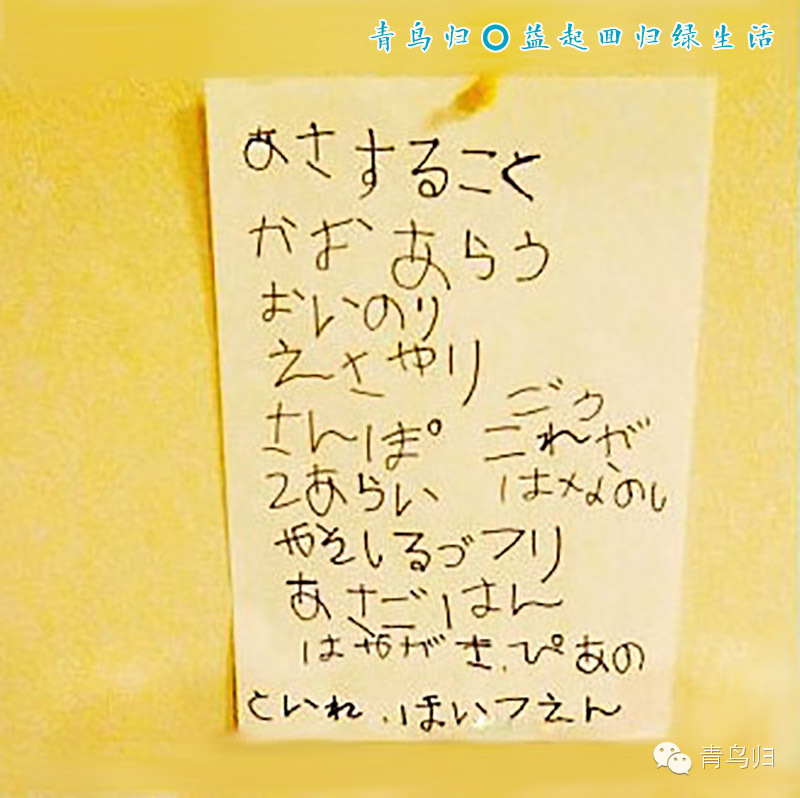 青鸟归 益起回归绿生活
あさすること
かお あらう
おいのり
えさやり
さんぽ
ごう
これが
はなのし
2あらい
やそしるづフリ
あさごはん
はやがき.ぴあの
といれ.ほいつえん
青鸟归